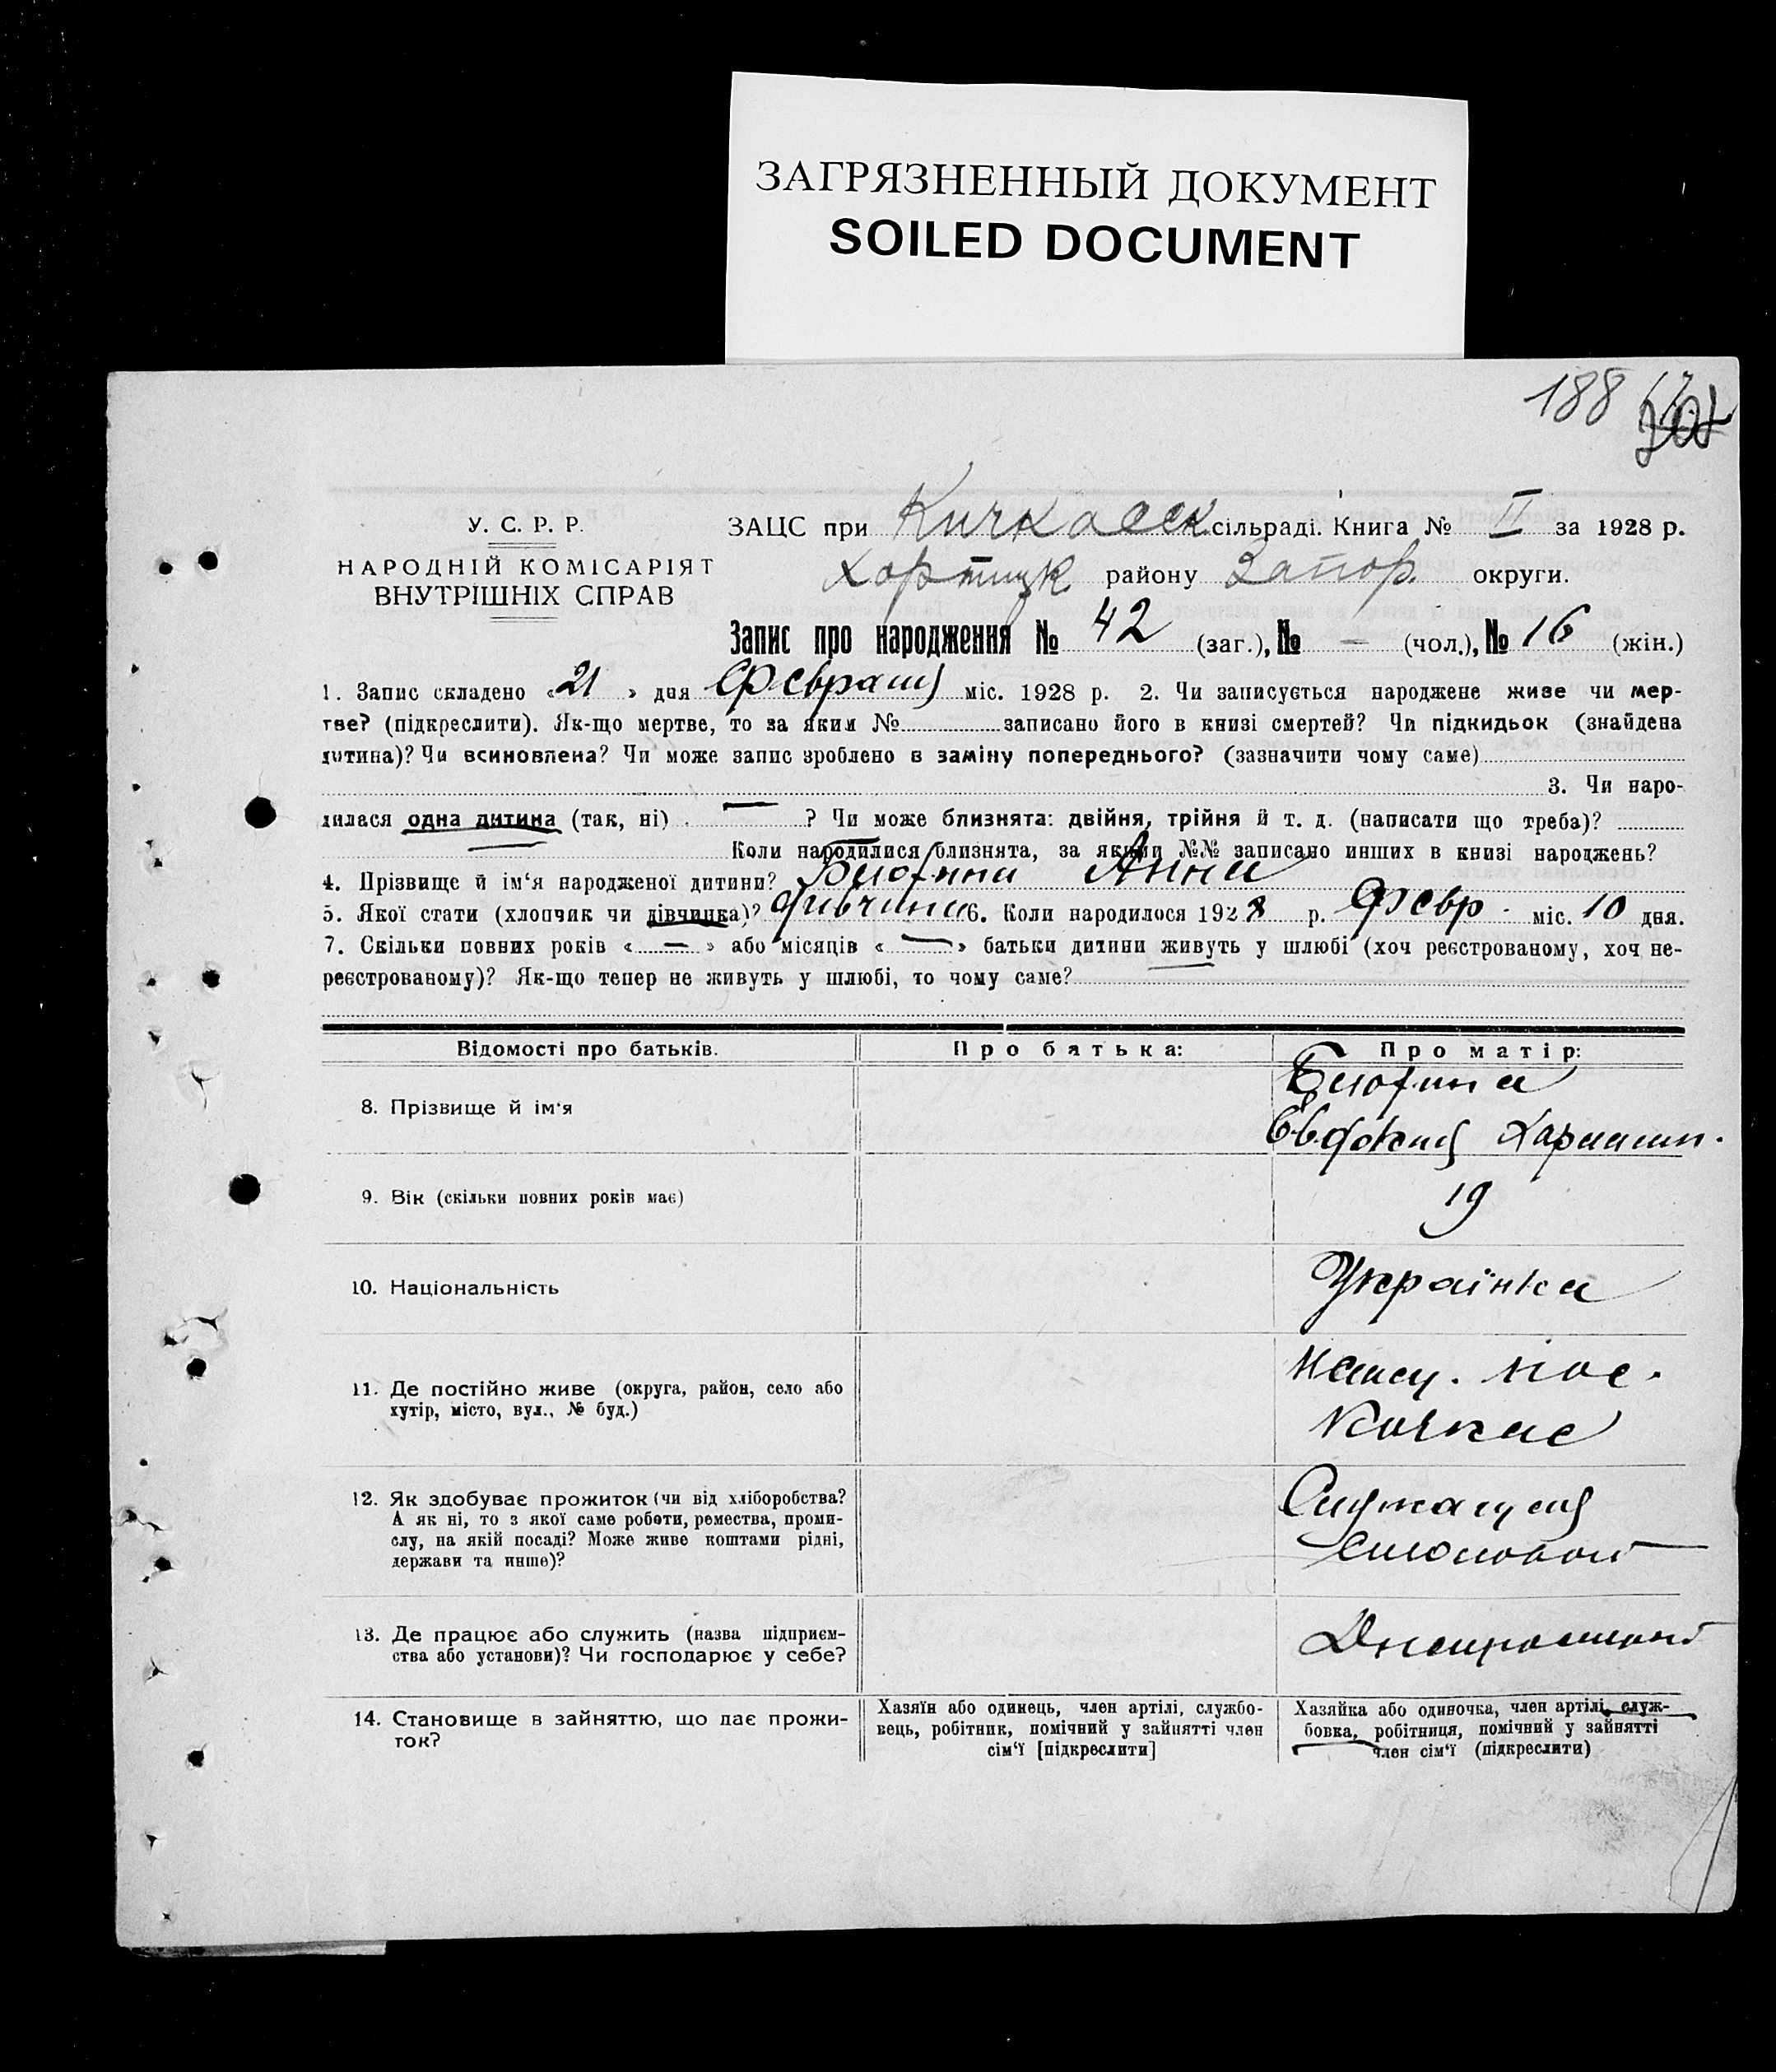 ЗАГРЯЗНЕННЫЙ ДОКУМЕНТ
SOILED DOCUMENT
188
У. С. Р. Р.
НАРОДНІЙ КОМІСАРІЯТ
ВНУТРІШНІХ СПРАВ
ЗАЦС при Кичкасск сільраді. Книга № II за 1928 р.
Хортицк району Запор. округи.
Запис про народження № 42 (заг.), № — (чол.), № 16 (жін.)
1. Запис складено «21» дня Февраля міс. 1928 р. 2. Чи записується народжене живе чи мер-
тве? (підкреслити). Як-що мертве, то за яким № записано його в книзі смертей? Чи підкидьок (знайдена
дитина)? Чи всиновлена? Чи може запис зроблено в заміну попереднього? (зазначити чому саме)
3. Чи наро-
дилася одна дитина (так, ні) — ? Чи може близнята: двійня, трійня й т. д. (написати що треба)?
Коли народилися близнята, за якими №№ записано инших в книзі народжень?
4. Прізвище й ім‘я народженої дитини? Анна
5. Якої стати (хлопчик чи дівчинка)? дивчина 6. Коли народилося 1928 р. Февр. міс. 10 дня.
7. Скільки повних років « — » або місяців « — » батьки дитини живуть у шлюбі (хоч реєстрованому, хоч не-
реєстрованому)? Як-що тепер не живуть у шлюбі, то чому саме?
Відомості про батьків.
Про батька:
Про матір:
8. Прізвище й ім‘я
Евдокия
9. Вік (скільки повних років має)
19
10. Національність
Українка
11. Де постійно живе (округа, район, село або
хутір, місто, вул., № буд.)
пос.
Кичкас
12. Як здобуває прожиток (чи від хліборобства?
А як ні, то з якої саме роботи, ремества, проми-
слу, на якій посаді? Може живе коштами рідні,
держави та инше)?
Служащая
столовой
13. Де працює або служить (назва підприєм-
ства або установи)? Чи господарює у себе?
Днепрострой
14. Становище в зайняттю, що дає прожи-
ток?
Хазяїн або одинець, член артілі, службо-
вець, робітник, помічний у зайнятті член
сім‘ї [підкреслити]
Хазяйка або одиночка, член артілі, служ-
бовка, робітниця, помічний у зайнятті
член сім‘ї (підкреслити)